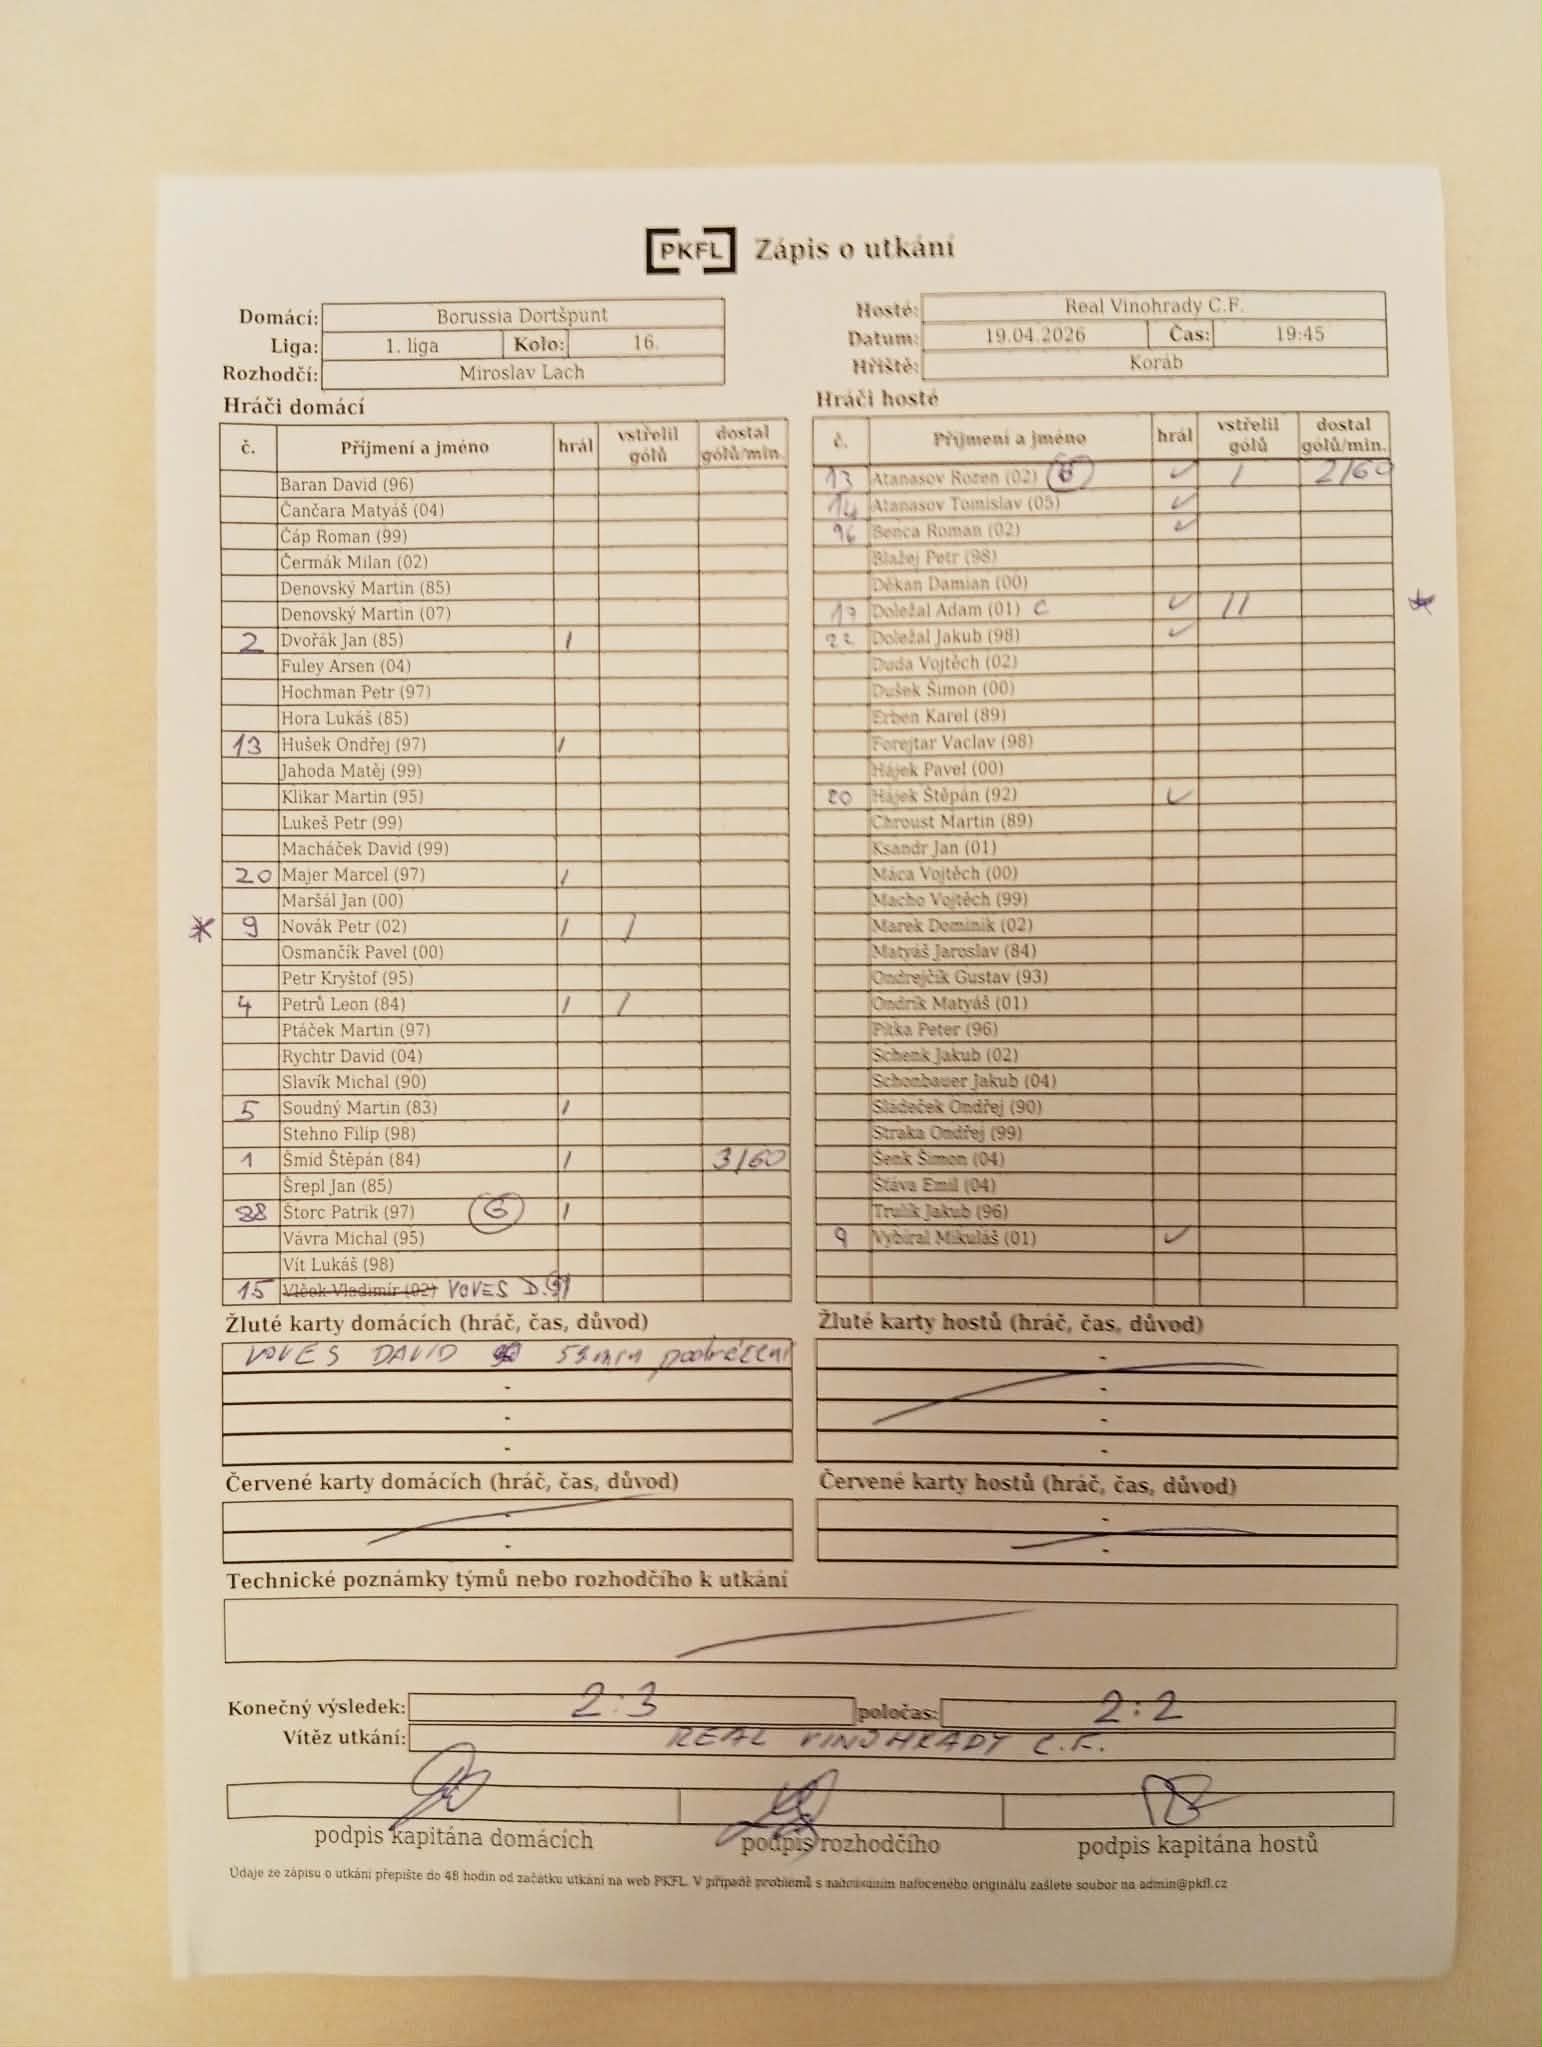 PKFL Zápis o utkání
Domácí: Borussia Dortšpunt
Liga: 1. liga Kolo: 16.
Rozhodčí: Miroslav Lach
Hosté: Real Vinohrady C.F.
Datum: 19.04.2026 Čas: 19:45
Hřiště: Koráb
Hráči domácí
č. Příjmení a jméno hrál vstřelil gólů dostal gólů/min.
Baran David (96)
Čančara Matyáš (04)
Čáp Roman (99)
Čermák Milan (02)
Denovský Martin (85)
Denovský Martin (07)
2 Dvořák Jan (85) /
Fuley Arsen (04)
Hochman Petr (97)
Hora Lukáš (85)
13 Hušek Ondřej (97) /
Jahoda Matěj (99)
Klikar Martin (95)
Lukeš Petr (99)
Macháček David (99)
20 Majer Marcel (97) /
Maršál Jan (00)
* 9 Novák Petr (02) / /
Osmančík Pavel (00)
Petr Kryštof (95)
4 Petrů Leon (84) / /
Ptáček Martin (97)
Rychtr David (04)
Slavík Michal (90)
5 Soudný Martin (83) /
Stehno Filip (98)
1 Šmíd Štěpán (84) / 3/60
Šrepl Jan (85)
88 Štorc Patrik (97) G /
Vávra Michal (95)
Vít Lukáš (98)
15 Vlček Vladimír (02) VOVES D.
Hráči hosté
č. Příjmení a jméno hrál vstřelil gólů dostal gólů/min.
13 Atanasov Rozen (02) ✓ / 2/60
14 Atanasov Tomislav (05) ✓
96 Benca Roman (02) ✓
Blažej Petr (98)
Děkan Damian (00)
17 Doležal Adam (01) C ✓ // *
22 Doležal Jakub (98) ✓
Duda Vojtěch (02)
Dušek Šimon (00)
Erben Karel (89)
Forejtar Vaclav (98)
Hájek Pavel (00)
20 Hájek Štěpán (92) ✓
Chroust Martin (89)
Ksandr Jan (01)
Máca Vojtěch (00)
Macho Vojtěch (99)
Marek Dominik (02)
Matyáš Jaroslav (84)
Ondrejčík Gustav (93)
Ondrík Matyáš (01)
Pitka Peter (96)
Schenk Jakub (02)
Schonbauer Jakub (04)
Sládeček Ondřej (90)
Straka Ondřej (99)
Šenk Šimon (04)
Šťáva Emil (04)
Trulík Jakub (96)
9 Vybíral Mikuláš (01) ✓
Žluté karty domácích (hráč, čas, důvod)
VOVES DAVID min podražení
-
-
-
Žluté karty hostů (hráč, čas, důvod)
-
-
-
-
Červené karty domácích (hráč, čas, důvod)
-
-
Červené karty hostů (hráč, čas, důvod)
-
-
Technické poznámky týmů nebo rozhodčího k utkání
Konečný výsledek: 2:3 poločas: 2:2
Vítěz utkání: REAL VINOHRADY C.F.
podpis kapitána domácích podpis rozhodčího podpis kapitána hostů
Údaje ze zápisu o utkání přepište do 48 hodin od začátku utkání na web PKFL. V případě problémů s nahráním nafoceného originálu zašlete soubor na admin@pkfl.cz